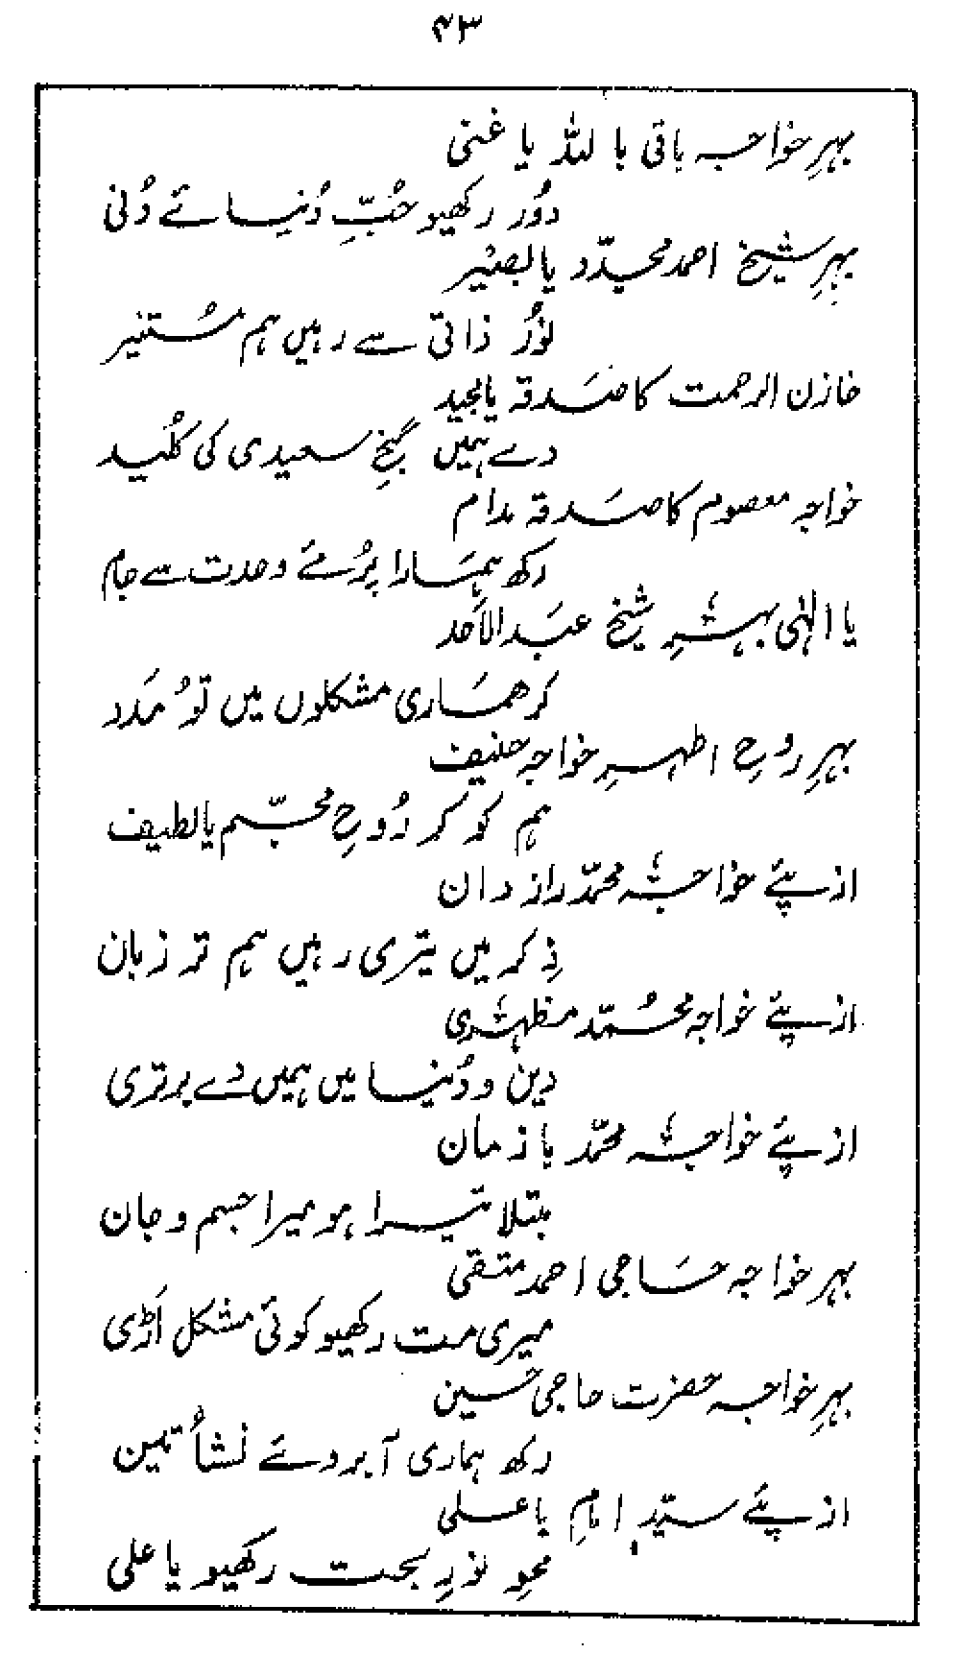 ۴۳
بہرِ خواجہ باقی باللہ یا غنی
دُور رکھیو حُبِّ دُنیائے دُنی
بہرِ شیخ احمد مجدّد یا بصیر
نورُ ذاتی سے رہیں ہم مُستنیر
خازن الرحمت کا صَدقہ یا مجید
دے ہمیں گنجِ سعیدی کی کلُید
خواجہ معصوم کا صَدقہ مدام
رکھ ہمَارا پُر مئے وحدت سے جام
یا الٰہی بہرِ شیخ عبَدالاَحد
کر ھمَاری مشکلوں میں توُ مَدد
بہرِ روحِ اطہرِ خواجہ حنیف
ہم کو کر رُوحِ مجسّم یا لطیف
از پئے خواجہ محمّد راز دان
ذِکر میں تیری رہیں ہم تر زبان
از پئے خواجہ محُمّد مظہری
دین و دُنیا میں ہمیں دے برتری
از پئے خواجہ محمّد با زمان
مبتلا تیرا ہو میرا جسم و جان
بہر خواجہ حَاجی احمد متقی
میری مت رکھیو کوئی مشکل اَڑی
بہرِ خواجہ حضرت حاجی حسین
رکھ ہماری آبروئے نشأتین
از پئے سیّد امامِ یا علی
محوِ نورِ بحت رکھیو یا علی